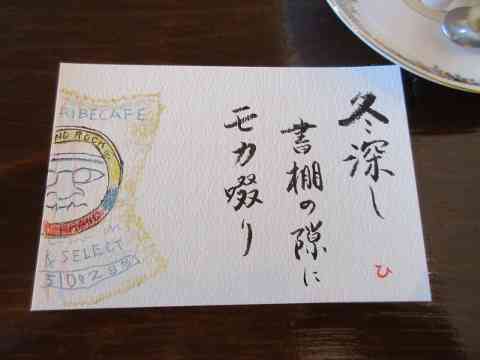 冬深し
書棚の隙に
モカ啜り
ひ
IBECAFE
ND ROCK
& SELECT